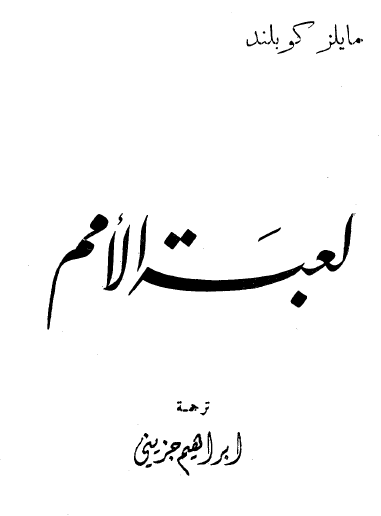 مايلز كوبلند
لعبة الأمم
ترجمة
ابراهيم جزيني